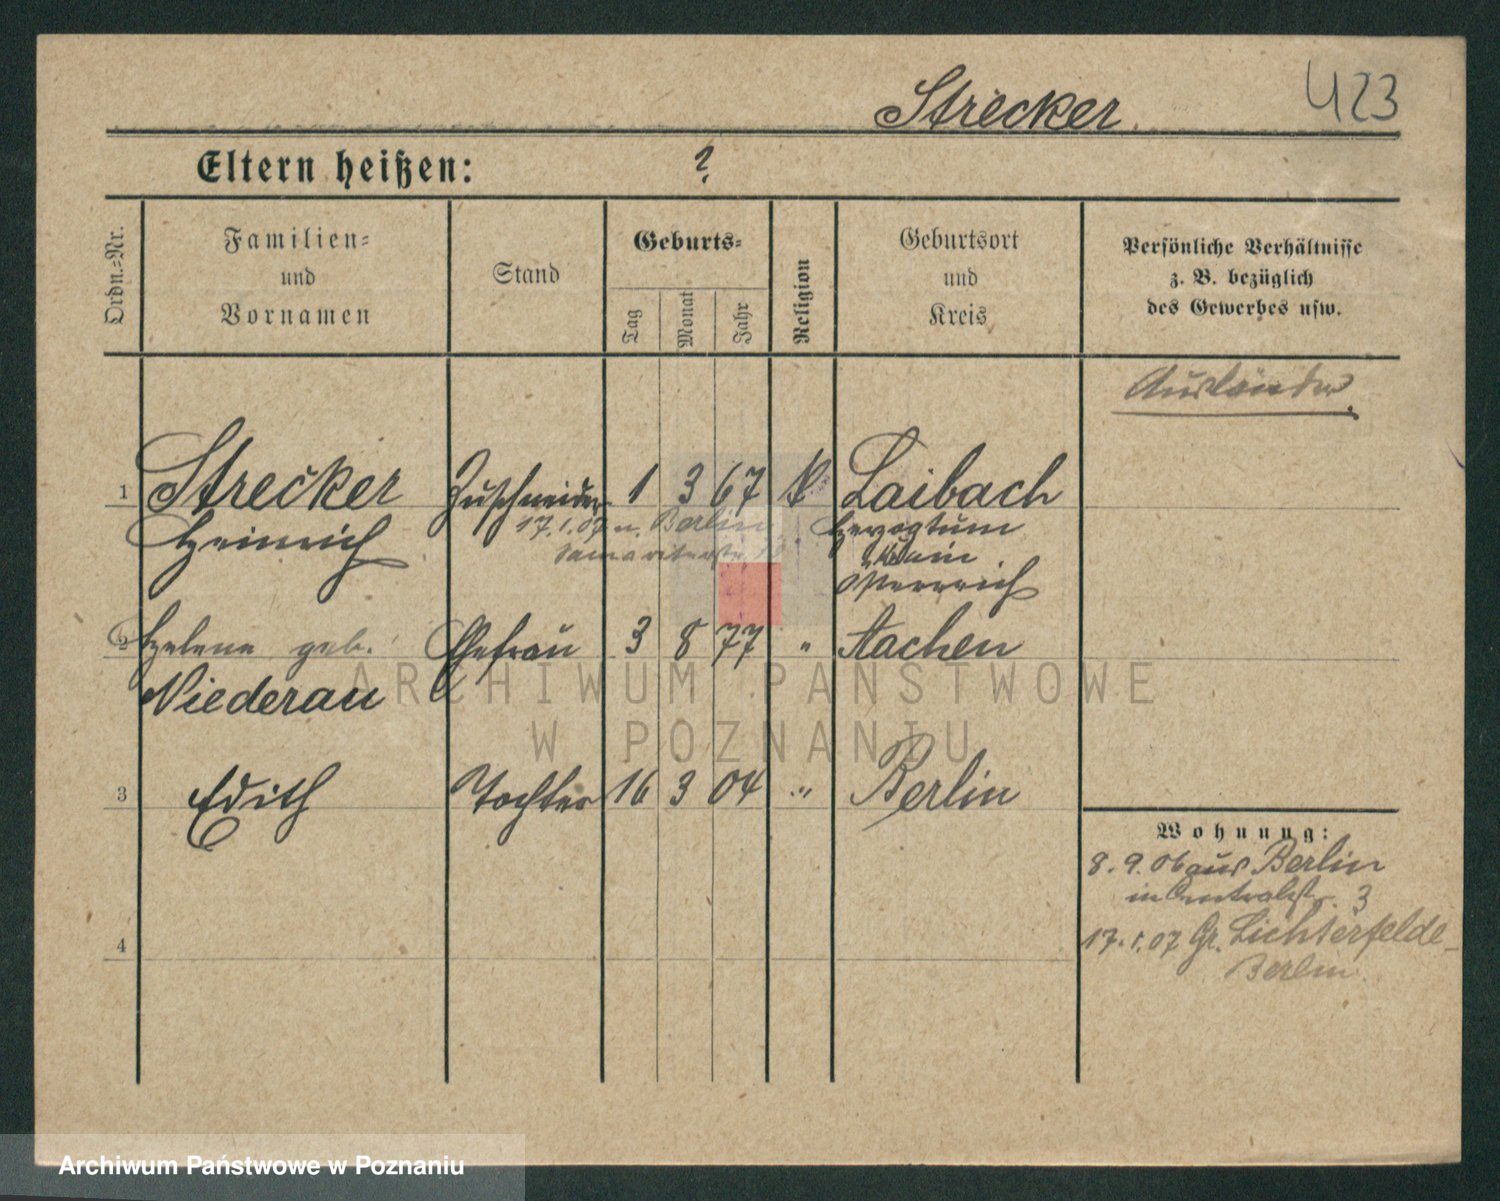 Strecker
423
Eltern heißen: ?
Ordn.-Nr.
Familien-
und
Vornamen
Stand
Geburts-
Tag
Monat
Jahr
Religion
Geburtsort
und
Kreis
Persönliche Verhältnisse
z. B. bezüglich
des Gewerbes usw.
Ausländer.
1 Strecker Zuschneider 1 3 67 k Laibach
Heinrich
17.1.07 n. Berlin
Samariterstr. 13
Herzogtum
Krain
Österreich
2 Helene geb. Ehefrau 3 8 77 " Aachen
Niederau
3 Edith Tochter 16 3 04 " Berlin
4
Wohnung:
8.9.06 aus Berlin
in Centralstr. 3
17.1.07 Gr. Lichterfelde-
Berlin
ARCHIWUM PAŃSTWOWE
W POZNANIU
Archiwum Państwowe w Poznaniu